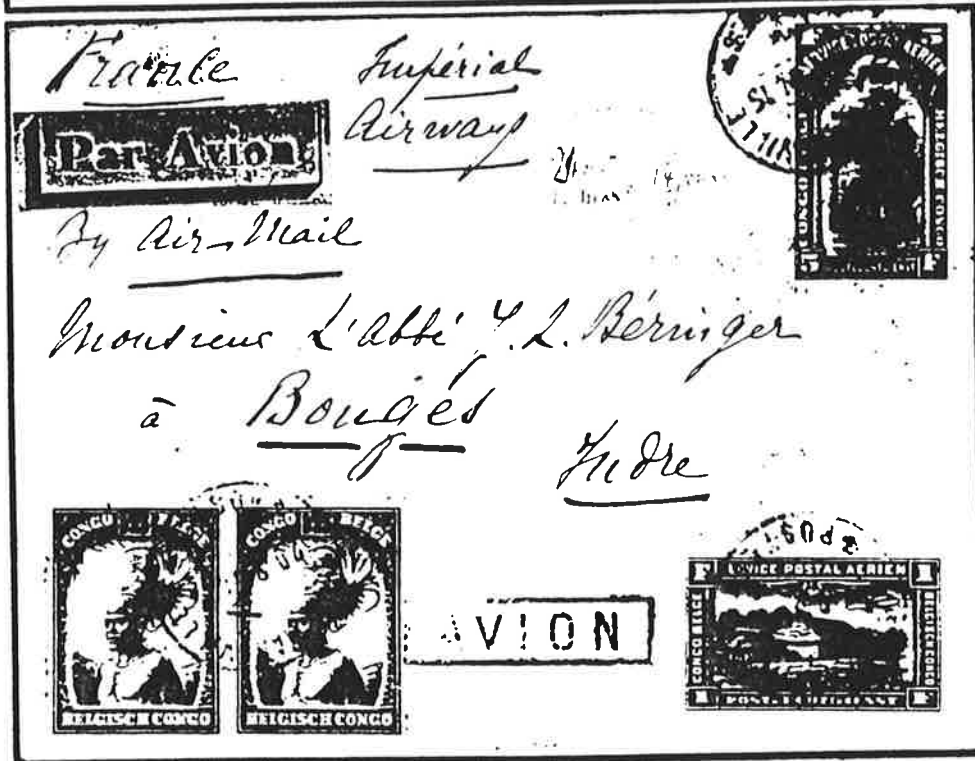 France
Impérial
Airways
Par Avion
By Air-Mail
Monsieur L'abbé J. L. Béringer
à Bougés
Indre
SERVICE POSTAL AERIEN
CONGO BELGE
BELGISCH CONGO
5 F
VILLE
CONGO BELGE
BELGISCH CONGO
CONGO BELGE
BELGISCH CONGO
AVION
F SERVICE POSTAL AERIEN 1
CONGO BELGE
BELGISCH CONGO
1 POST F